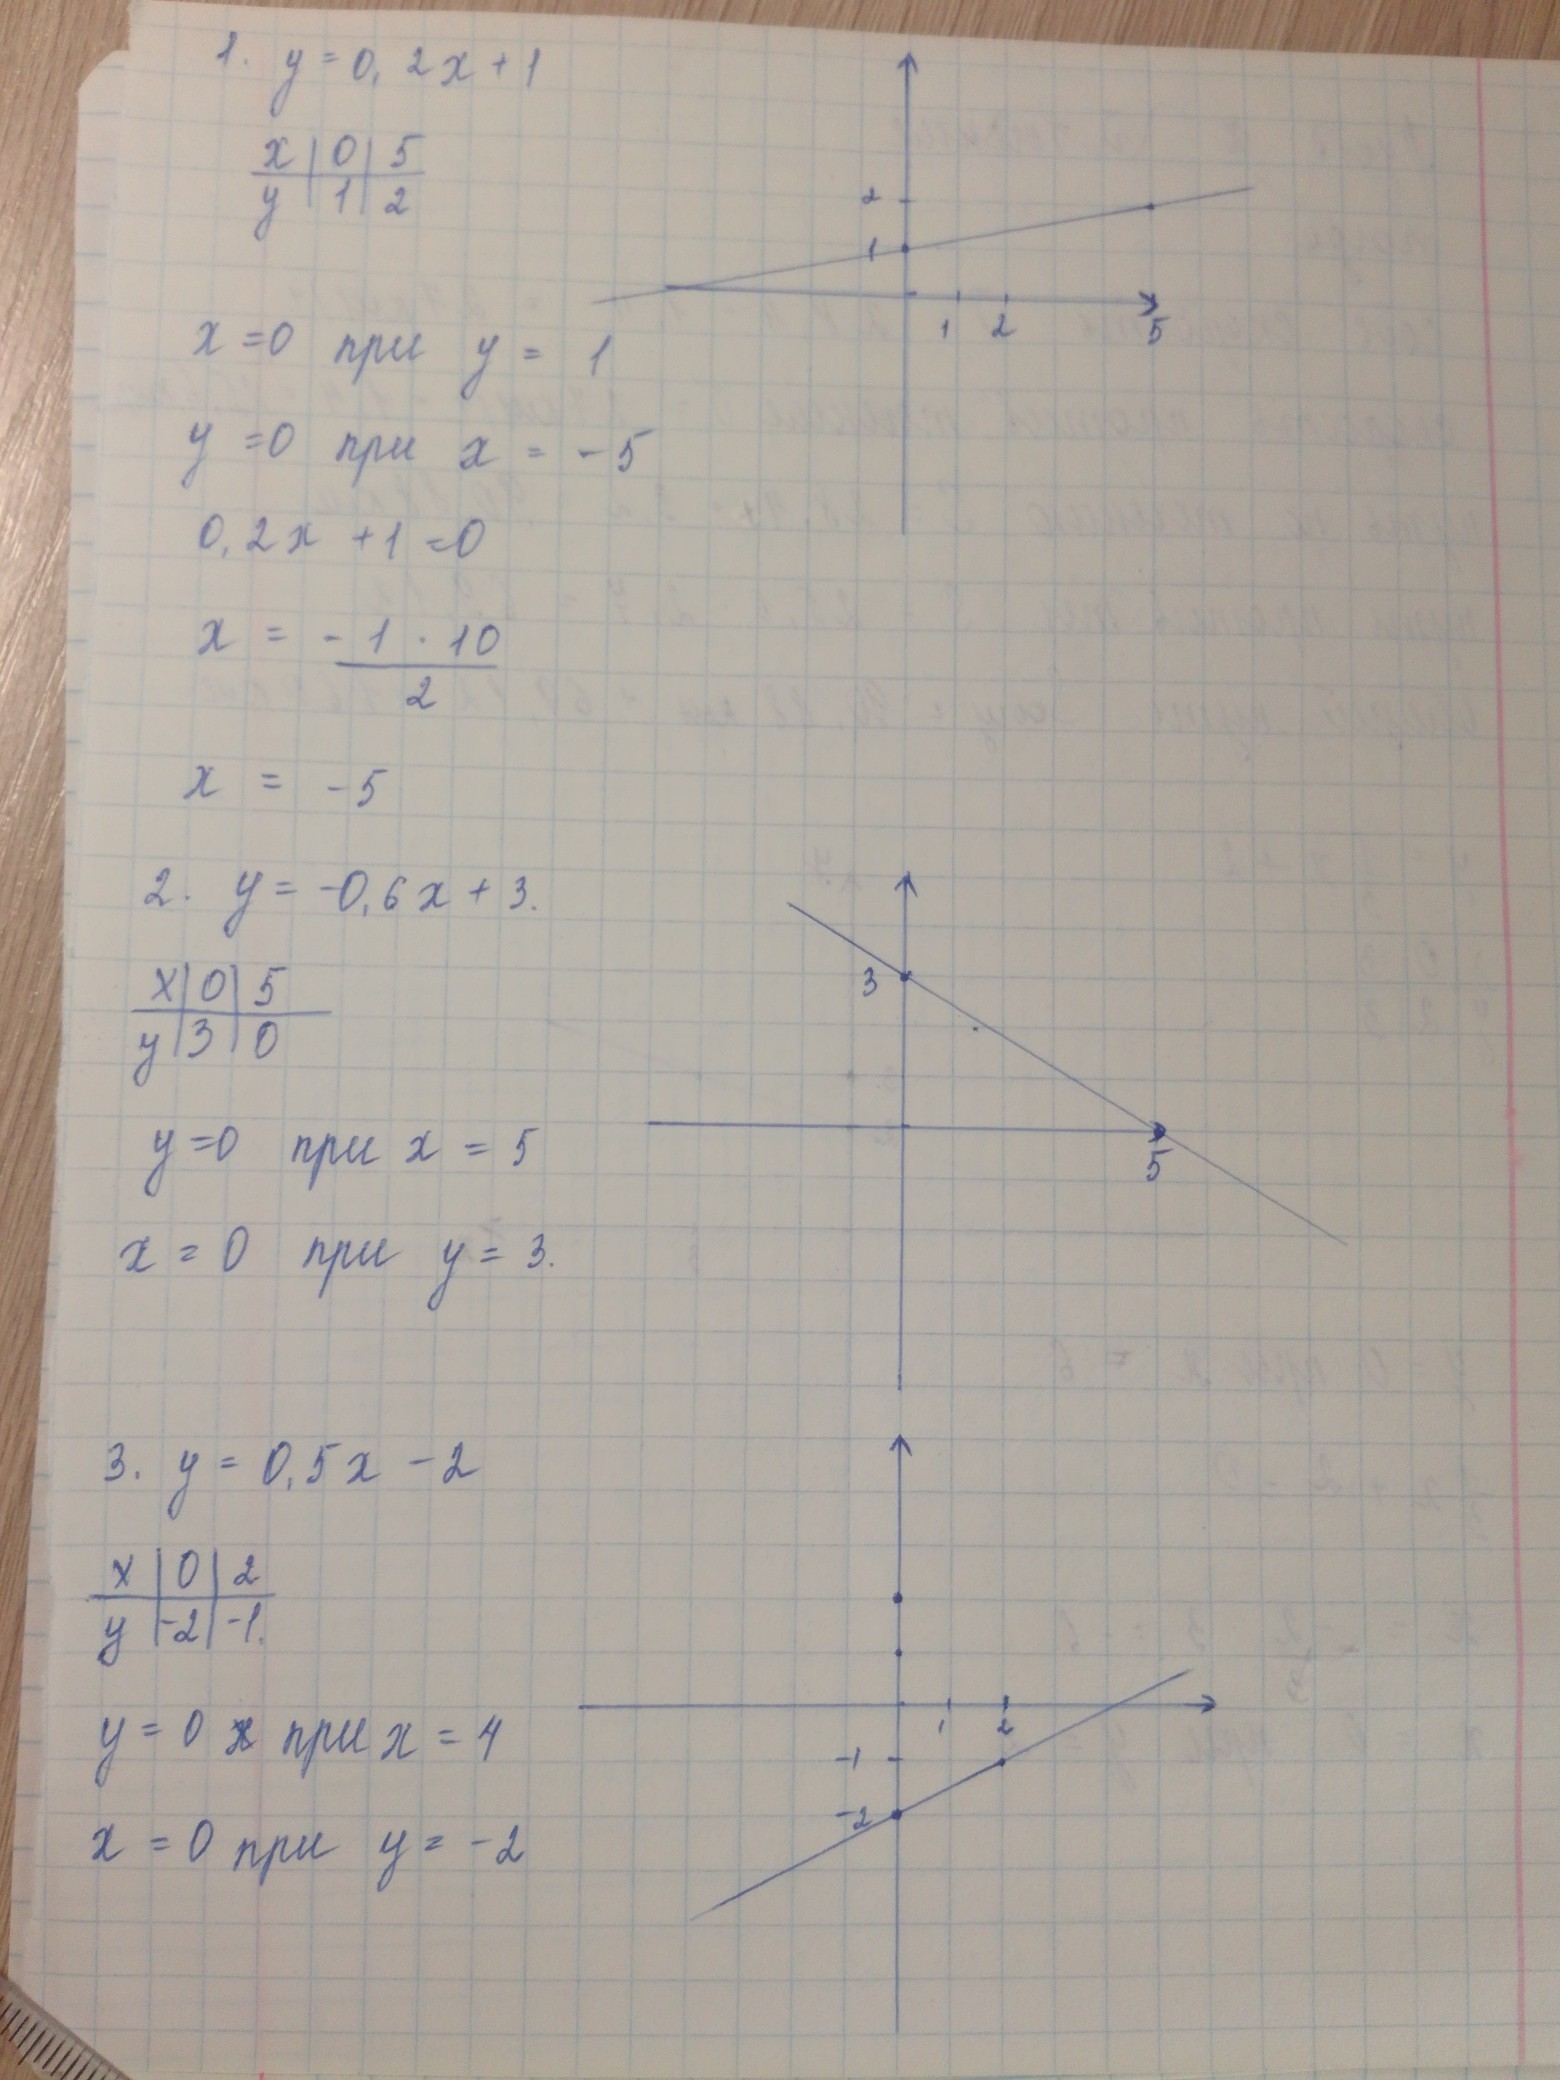 1. y = 0,2x + 1
x | 0 | 5
y | 1 | 2
2
1
1 2 5
x = 0 при y = 1
y = 0 при x = -5
0,2x + 1 = 0
x = - 1 · 10
2
x = -5
2. y = -0,6x + 3.
x | 0 | 5
y | 3 | 0
3
5
y = 0 при x = 5
x = 0 при y = 3.
3. y = 0,5x - 2
x | 0 | 2
y | -2 | -1.
1 2
-1
-2
y = 0 при x = 4
x = 0 при y = -2